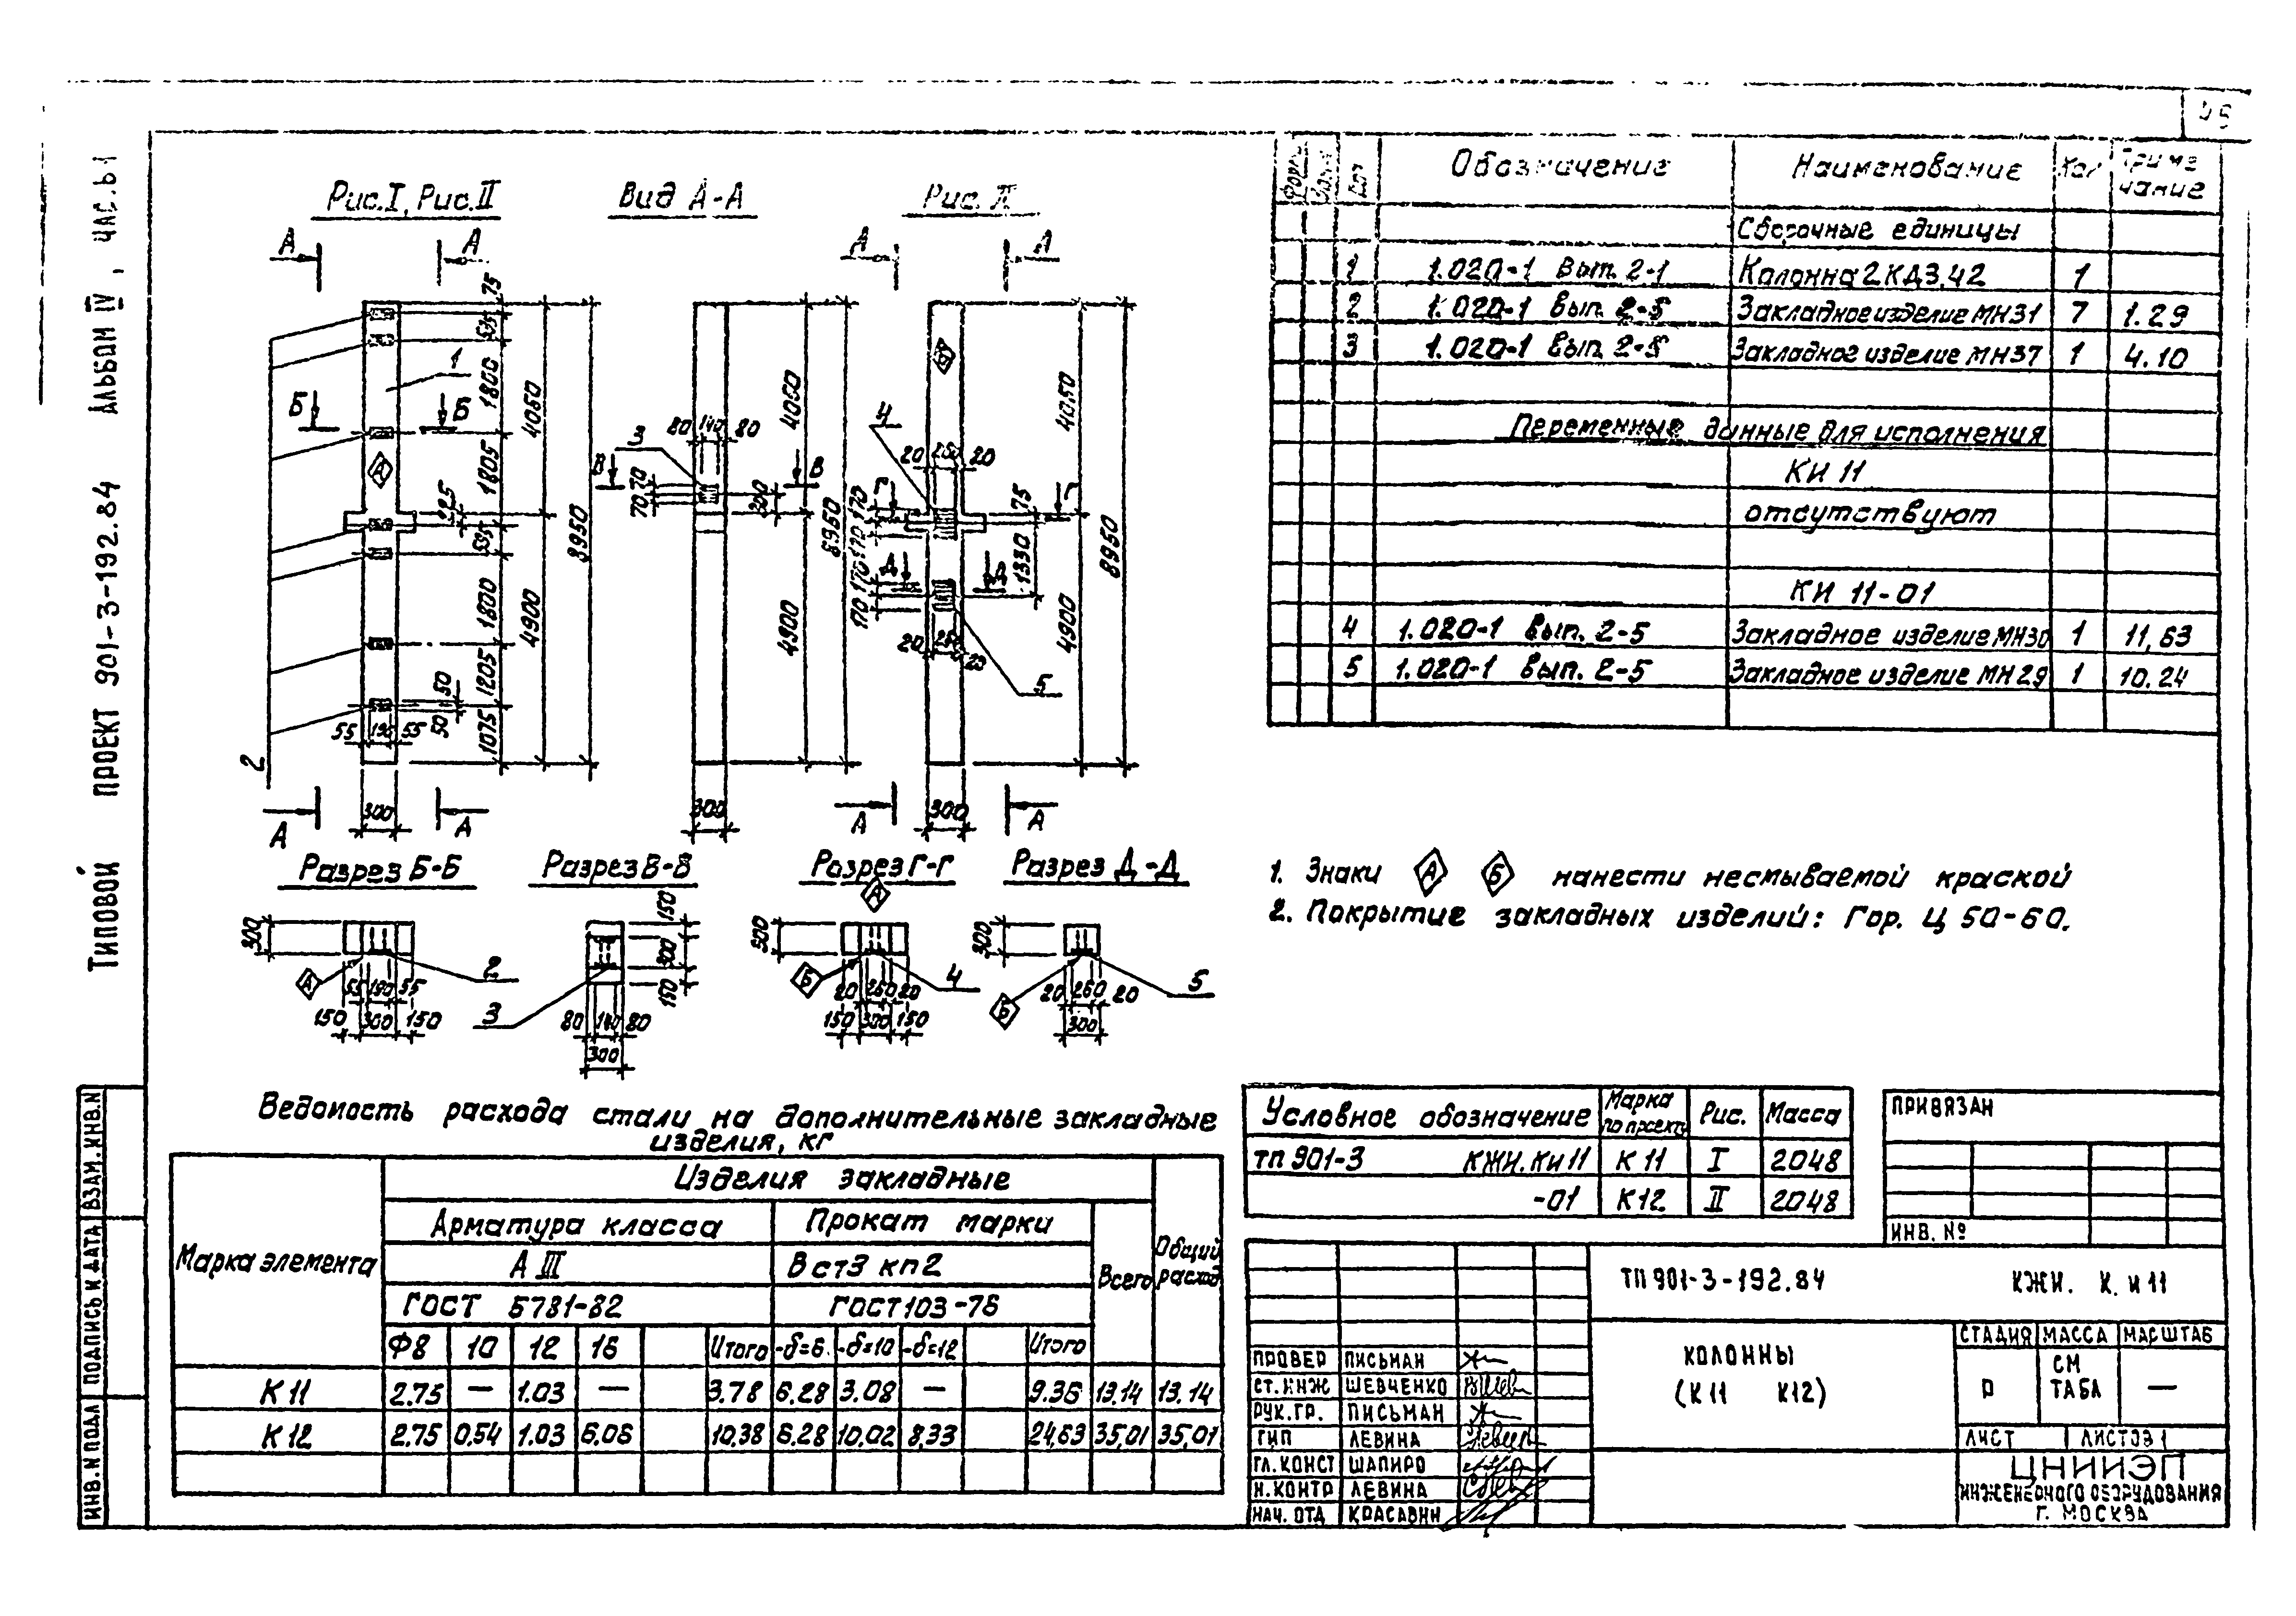 ТИПОВОЙ ПРОЕКТ 901-3-192.84 АЛЬБОМ IV, ЧАСТЬ 1
Рис. I, Рис. II
Вид А-А
Рис. II
А А
А А
75
535
1800
1805
225
535
1800
1205
1075
4050
4900
8950
1
Б Б
А
50
50
55 190 55
2
А А
300
3
80 140 80
В В
70 70
300
4050
4900
8950
300
Б
4
20 260 20
Г Г
170 170
75
1330
Д Д
170 170
20 260 20
5
4050
4900
8950
А А
300
Разрез Б-Б
300
А
2
55 190 55
150 300 150
Разрез В-В
150
300
150
3
80 140 80
300
Разрез Г-Г
А
300
Б
4
20 260 20
150 300 150
Разрез Д-Д
300
Б
5
20 260 20
300
Обозначение Наименование Кол Приме-
чание
Сборочные единицы
1 1.020-1 Вып. 2-1 Колонна 2КД3.42 1
2 1.020-1 Вып. 2-5 Закладное изделие МН31 7 1.29
3 1.020-1 Вып. 2-5 Закладное изделие МН37 1 4.10
Переменные данные для исполнения
КИ 11
отсутствуют
КИ 11-01
4 1.020-1 Вып. 2-5 Закладное изделие МН30 1 11,63
5 1.020-1 Вып. 2-5 Закладное изделие МН29 1 10.24
1. Знаки А Б нанести несмываемой краской
2. Покрытие закладных изделий: Гор. Ц 50-60.
Ведомость расхода стали на дополнительные закладные
изделия, кг
Марка элемента
Изделия закладные
Общий расход
Арматура класса Прокат марки
Всего
А III В ст3 кп2
ГОСТ 5781-82 ГОСТ 103-76
Ф8 10 12 16 Итого -δ=6 -δ=10 -δ=12 Итого
К 11 2.75 — 1.03 — 3.78 6.28 3.08 — 9.36 13.14 13.14
К 12 2.75 0.54 1.03 6.06 10,38 6.28 10,02 8,33 24,63 35,01 35,01
Условное обозначение Марка по проекту Рис. Масса
ТП 901-3 КЖИ.КИ11 К 11 I 2048
-01 К12 II 2048
ПРИВЯЗАН
ИНВ. №
ТП 901-3-192.84 КЖИ. К. и 11
ПРОВЕР ПИСЬМАН
СТ.ИНЖ ШЕВЧЕНКО
РУК.ГР. ПИСЬМАН
ГИП ЛЕВИНА
ГЛ.КОНСТ ШАПИРО
Н.КОНТР ЛЕВИНА
НАЧ. ОТД КРАСАВИН
КОЛОННЫ
(К11 К12)
СТАДИЯ МАССА МАСШТАБ
Р СМ ТАБЛ —
ЛИСТ ЛИСТОВ 1
ЦНИИЭП
ИНЖЕНЕРНОГО ОБОРУДОВАНИЯ
Г. МОСКВА
ИНВ.N ПОДЛ ПОДПИСЬ И ДАТА ВЗАМ.ИНВ.N